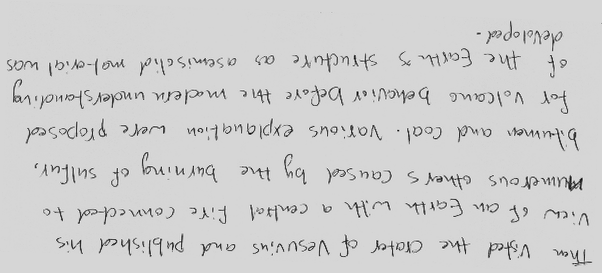 Then visted the crater of Vesuvius and published his
view of an Earth with a central fire connected to
numerous others caused by the burning of sulfur,
bitumen and coal. Various explanation were proposed
for volcano behavior before the modern understanding
of the Earth's structure as a semisolid material was
developed.